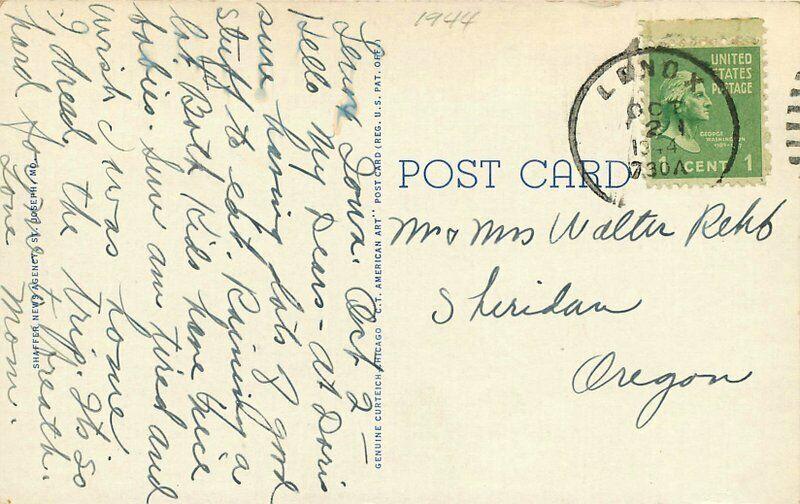 1944
Lenox Iowa. Oct 2 —
Hello My Dears - at Doris
sure having lots of good
stuff to eat. Raining a
lot. Both Kids have nice
babies. Sure am tired and
wish I was home
I dread the trip. Its so
hard for me to breath.
Love Mom.
SHAFFER NEWS AGENCY, ST. JOSEPH, MO.
GENUINE CURTEICH-CHICAGO "C.T. AMERICAN ART" POST CARD (REG. U.S. PAT. OFF.)
POST CARD
LENOX
OCT
21
730A
UNITED
STATES
POSTAGE
GEORGE
WASHINGTON
1 CENT 1
Mr & Mrs Walter Rehb
Sheridan
Oregon